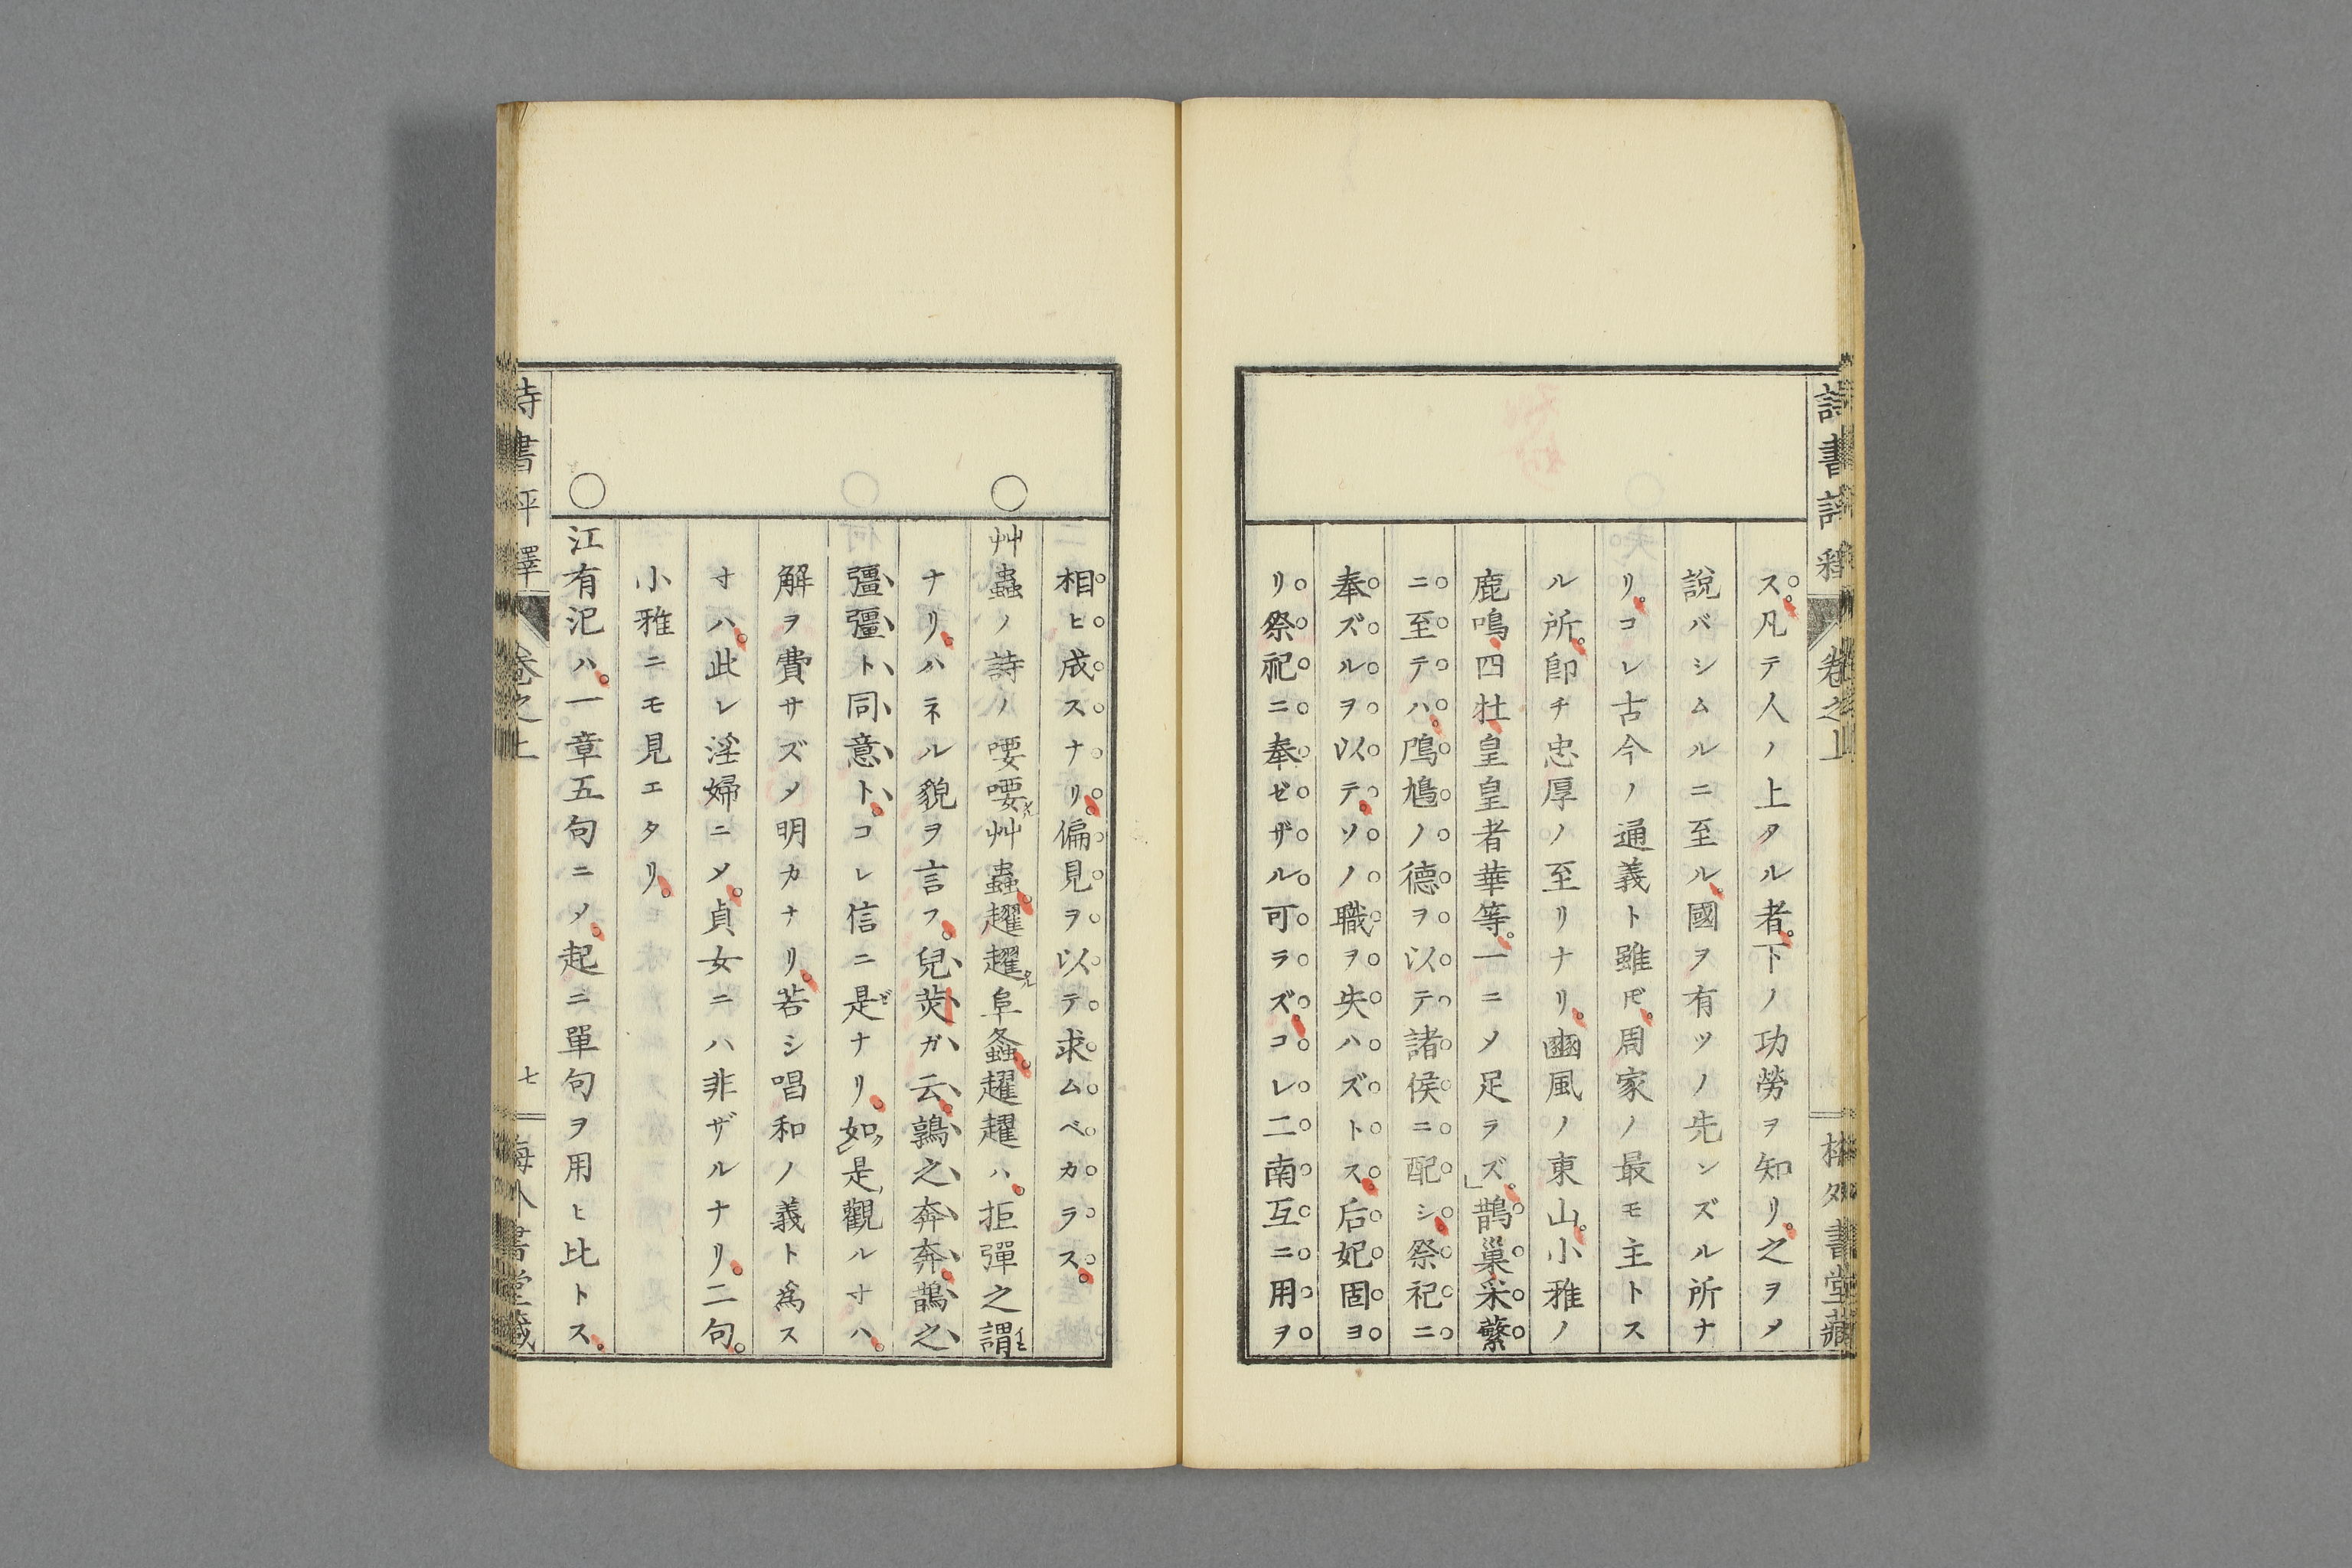 詩書評釋 卷之上 梅外書堂藏
ス。凡テ人ノ上タル者。下ノ功勞ヲ知リ。之ヲ〆
說バシムルニ至ル。國ヲ有ツノ先ンズル所ナ
リ。コレ古今ノ通義ト雖𪜈。周家ノ最モ主トス
ル所。卽チ忠厚ノ至リナリ。豳風ノ東山。小雅ノ
鹿鳴四牡皇皇者華等。一ニ〆足ラズ。」鵲巢采蘩
ニ至テハ。鳲鳩ノ德ヲ以テ諸侯ニ配シ。祭祀ニ
奉ズルヲ以テソノ職ヲ失ハズトス。后妃固ヨ
リ祭祀ニ奉ゼザル可ラズ。コレ二南互ニ用ヲ
相ヒ成スナリ。偏見ヲ以テ求ムベカラス。
○艸蟲ノ詩ノ喓喓艸蟲。趯趯阜螽。趯趯ハ。拒彈之謂
ナリ。ハネル貌ヲ言フ。兒莢ガ云。鶉之奔奔。鵲之
彊彊ト同意ト。コレ信ニ是ナリ。如是觀ルすハ。
解ヲ費サズ〆明カナリ。若シ唱和ノ義ト爲ス
すハ。此レ淫婦ニ〆。貞女ニハ非ザルナリ。二句。
小雅ニモ見エタリ。
○江有汜ハ。一章五句ニ〆。起ニ單句ヲ用ヒ比トス。
詩書評釋 卷之上 七 梅外書堂藏